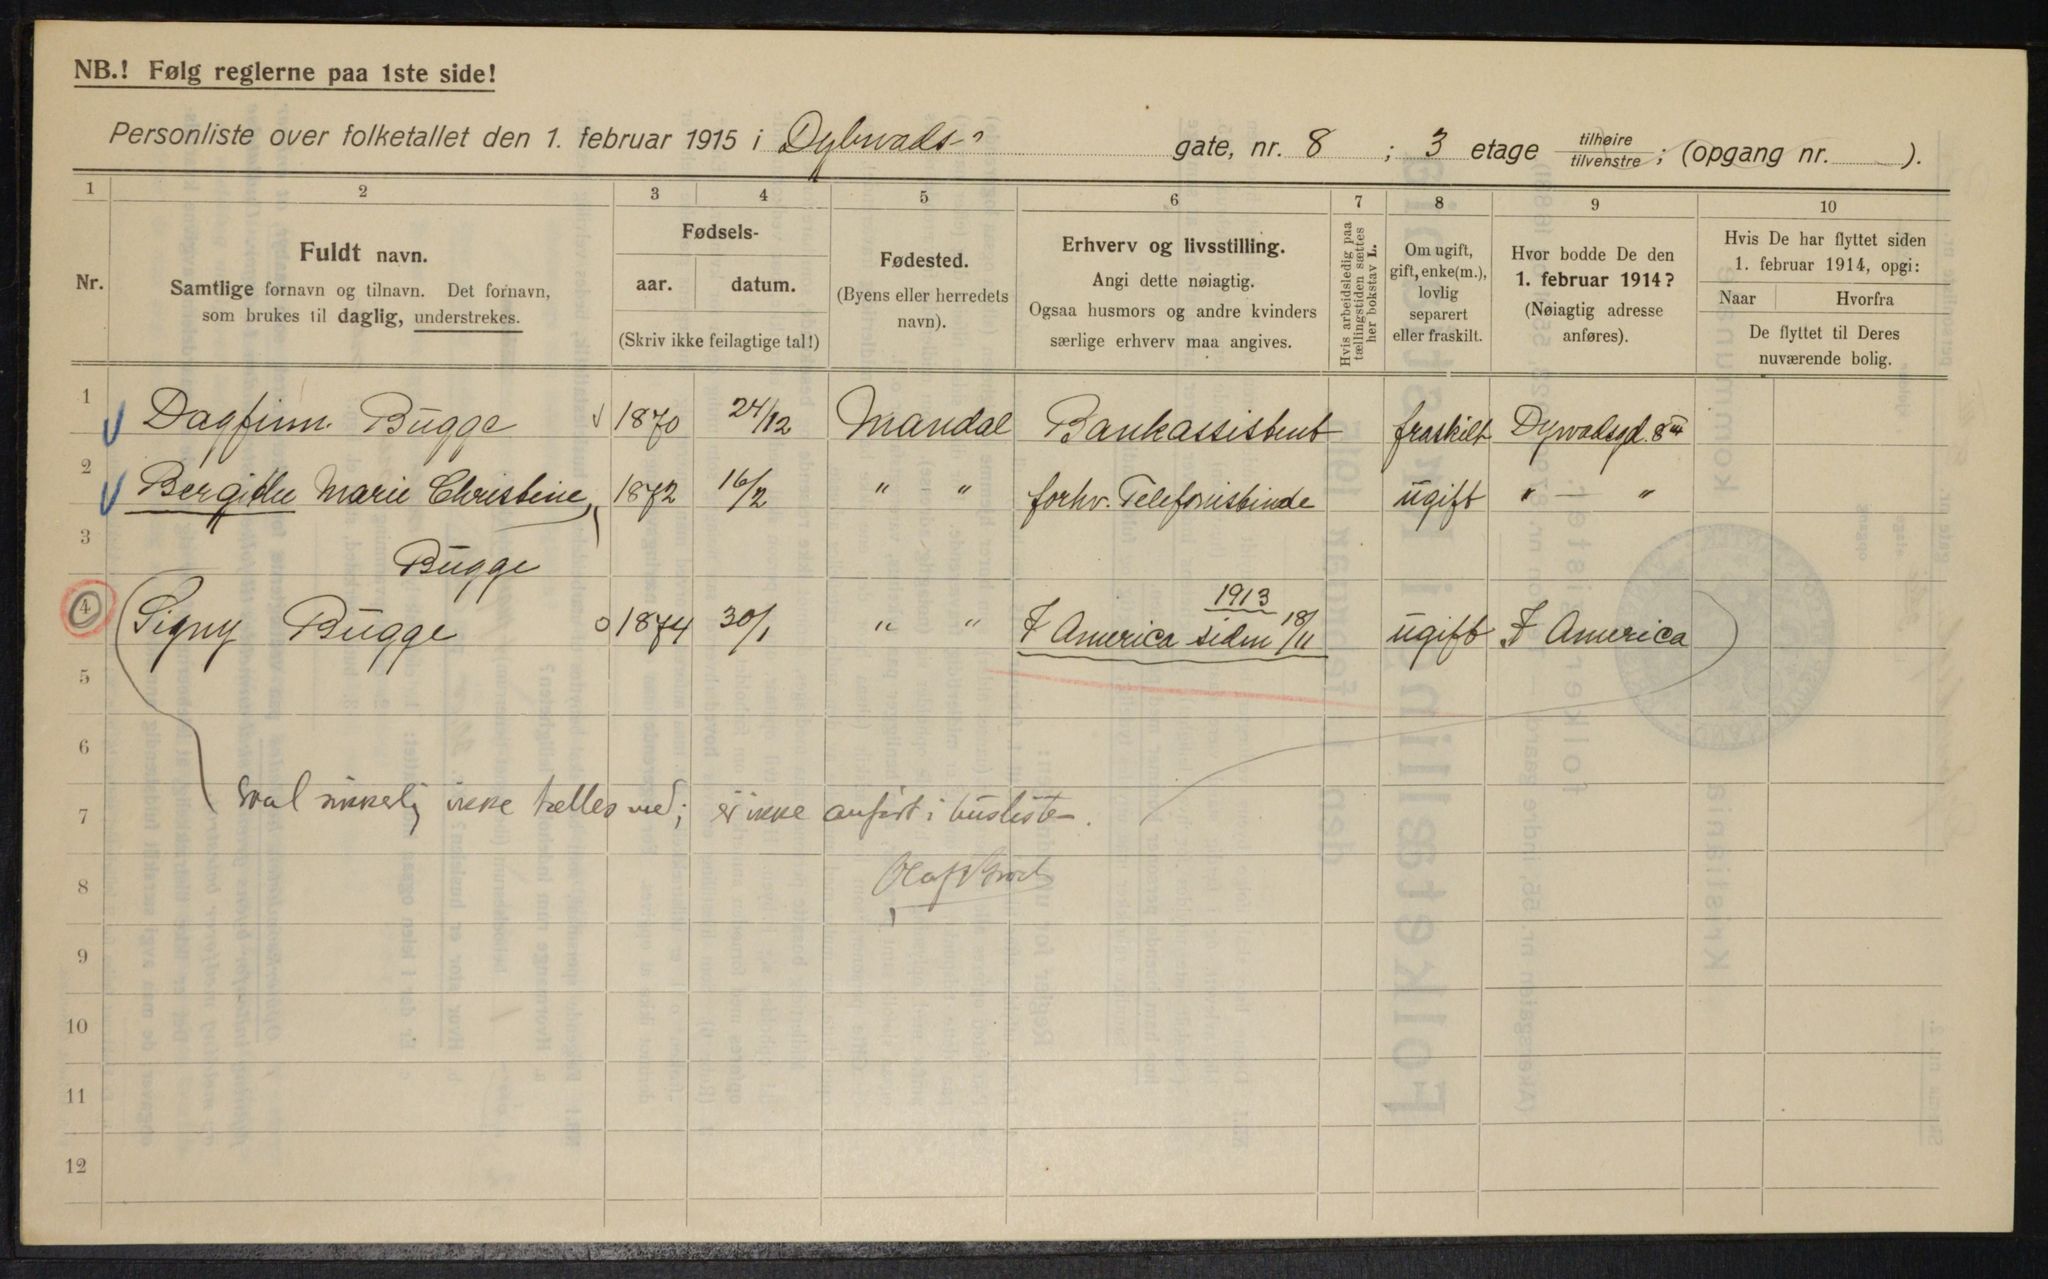 NB.! Følg reglerne paa 1ste side!
Personliste over folketallet den 1. februar 1915 i Dybwads- gate, nr. 8 ; 3 etage tilhøire / tilvenstre ; (opgang nr. ).
1 2 3 4 5 6 7 8 9 10
Nr.
Fuldt navn.
Samtlige fornavn og tilnavn. Det fornavn,
som brukes til daglig, understrekes.
Fødsels-
aar. datum.
(Skriv ikke feilagtige tal!)
Fødested.
(Byens eller herredets
navn).
Erhverv og livsstilling.
Angi dette nøiagtig.
Ogsaa husmors og andre kvinders
særlige erhverv maa angives.
Hvis arbeidsledig paa
tællingstiden sættes
her bokstav L.
Om ugift,
gift, enke(m.),
lovlig
separert
eller fraskilt.
Hvor bodde De den
1. februar 1914?
(Nøiagtig adresse
anføres).
Hvis De har flyttet siden
1. februar 1914, opgi:
Naar Hvorfra
De flyttet til Deres
nuværende bolig.
1 Dagfinn Bugge 1870 24/12 Mandal Bankassistent fraskilt Dyvadsgd. 8 III
2 Bergithe Marie Christine, 1872 16/2 " " forhv. Telefonistinde ugift " — "
3 Bugge
1913
4 Signy Bugge 1874 30/1 " " I America siden 18/11 ugift I America
5
6
7 skal sikkerlig ikke tælles med; er ikke anført i huslisten.
8 Olaf
9
10
11
12